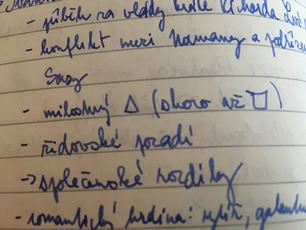 - příběh za vlády krále Richarda
- konflikt mezi Normany a
Sasy
- milostný △ (skoro až □)
- židovské pozadí
→ společenské rozdíly
- romantický hrdina: rytíř,